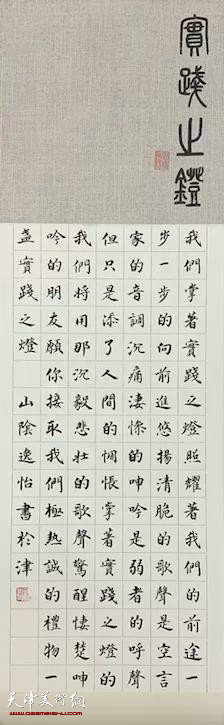 實踐之鐙
我們掌著實踐之燈照耀著我們的前途一
步一步的向前進悠揚清脆的歌聲是空言
家的音調沉痛淒慘的呻吟是弱者的呼聲
但只是添了人間的惆悵掌著實踐之燈的
我們將用那沉毅悲壯的歌聲驚醒悽楚呻
吟的朋友願你接取我們極熱誠的禮物一
盞實踐之燈
山陰逸怡書於津
天津美术网